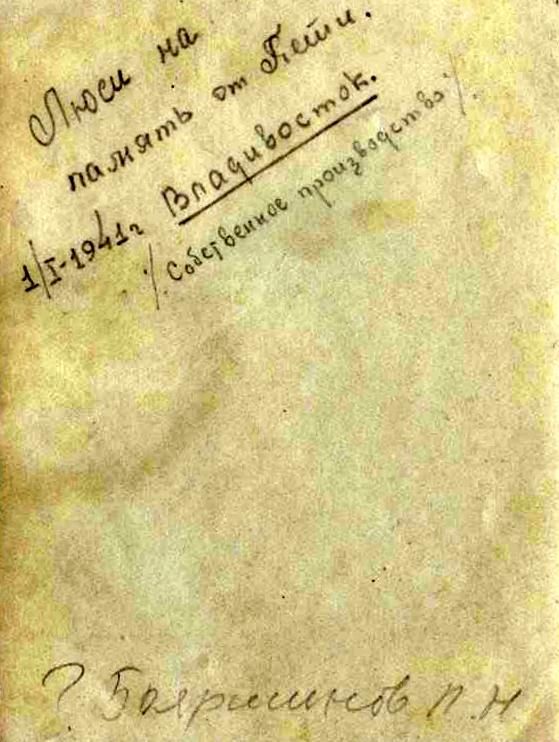 Люси на
память от Пети.
1/I-1941г Владивосток.
/. Собственное производство ./.
? Бояршинов П. Н